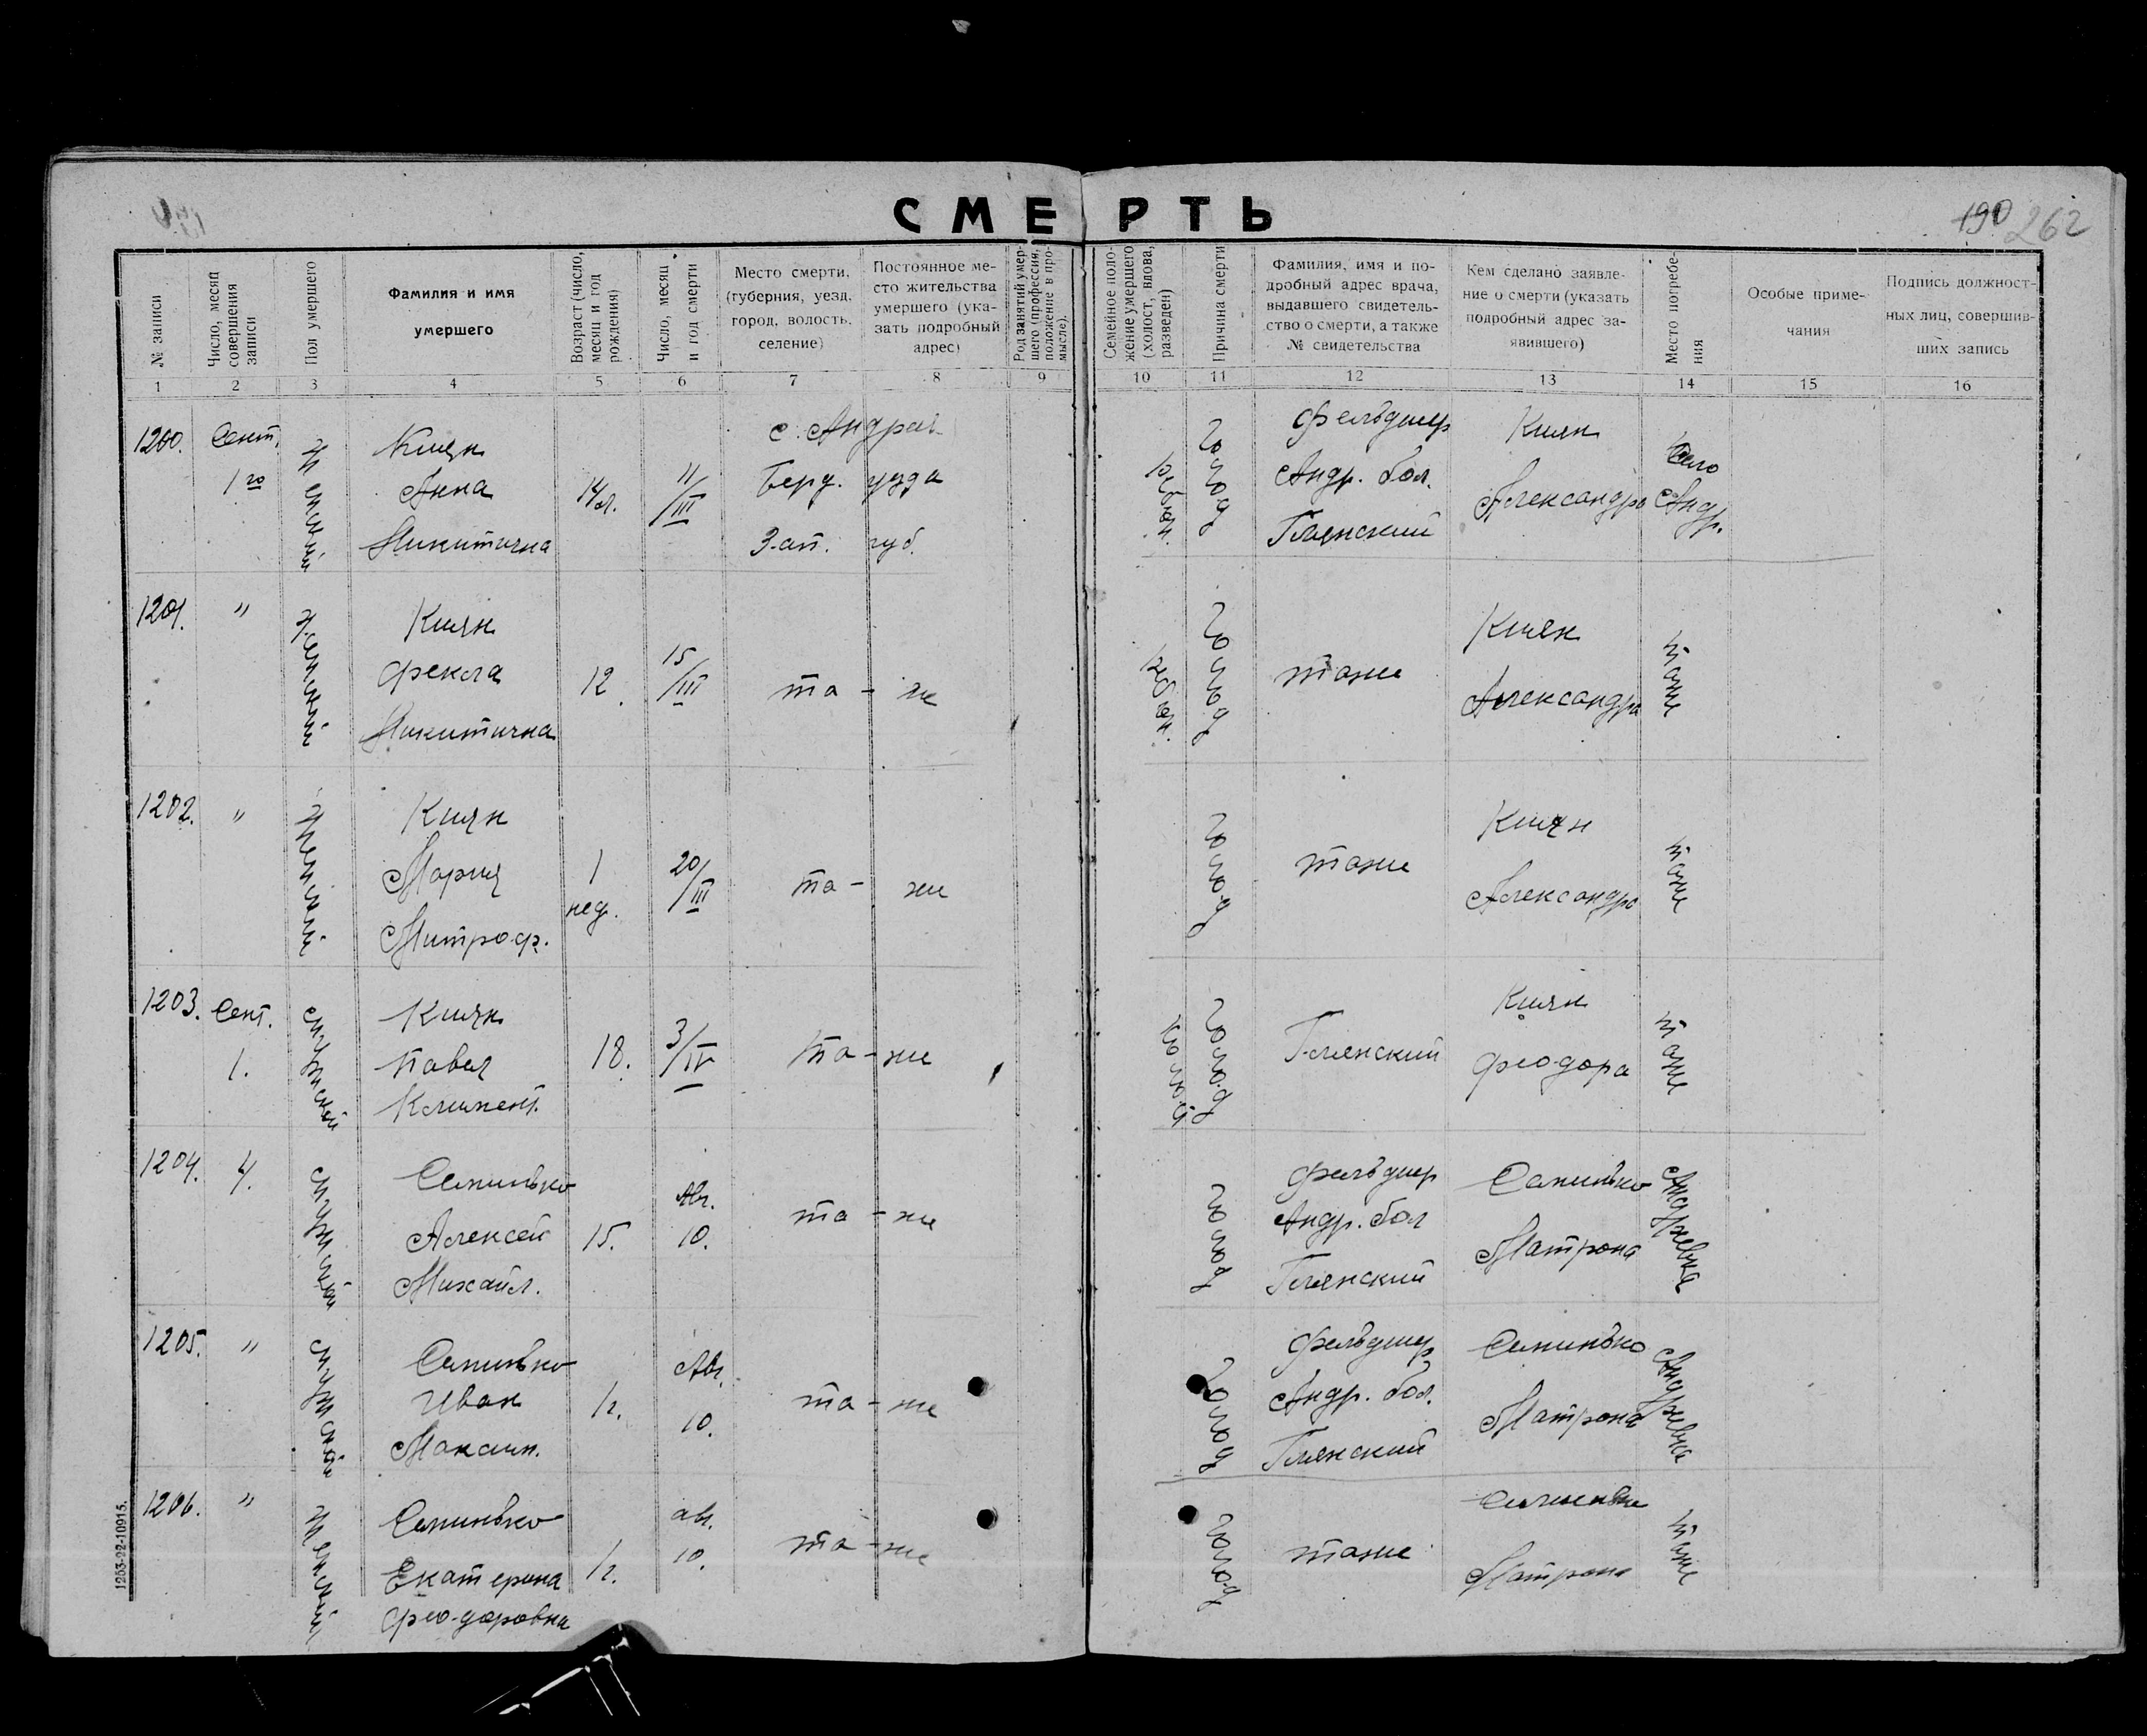 СМЕРТЬ
190 262
№ записи
Число, месяц совершения записи
Пол умершего
Фамилия и имя умершего
Возраст (число, месяц и год рождения)
Число, месяц и год смерти
Место смерти, (губерния, уезд, город, волость, селение)
Постоянное место жительства умершего (указать подробный адрес)
Род занятий умершего (профессия, положение в промысле).
Семейное положение умершего (холост, вдова, разведен)
Причина смерти
Фамилия, имя и подробный адрес врача, выдавшего свидетельство о смерти, а также № свидетельства
Кем сделано заявление о смерти (указать подробный адрес заявившего)
Место погребения
Особые примечания
Подпись должностных лиц, совершивших запись
1 2 3 4 5 6 7 8 9 10 11 12 13 14 15 16
1200. Сент. 1го
женский
Киян
Анна
Никитична
14 л.
11/III
с. Андреев.
Берд. уезда
Зап. губ.
голод
Фельдшер
Андр. бол.
Глянский
Киян
Александра
Село
Андр.
1201. "
женский
Киян
Фекла
Никитична
12.
15/III
та - же
голод
тоже
Киян
Александра
тоже
1202. "
женский
Киян
Мария
Митроф.
1
нед.
20/III
та - же
голод
тоже
Киян
Александра
тоже
1203. Сент.
1.
мужской
Киян
Павел
Климент.
18.
3/IV
та - же
холост
голод
Глянский
Киян
Феодора
тоже
1204. 4.
мужской
Санинько
Алексей
Михайл.
15.
Авг.
10.
та - же
голод
Фельдшер
Андр. бол
Глянский
Санинько
Матрона
Андреевка
1205. "
мужской
Санинько
Иван
Максим.
1 г.
Авг.
10.
та - же
голод
Фельдшер
Андр. бол.
Глянский
Санинько
Матрона
Андреевка
1206. "
женский
Санинько
Екатерина
Феодоровна
1 г.
авг.
10.
та - же
голод
тоже
Санинько
Матрона
тоже
1253-22-10915.